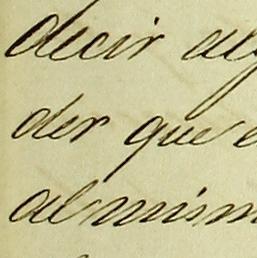 decir al
der que
al mism